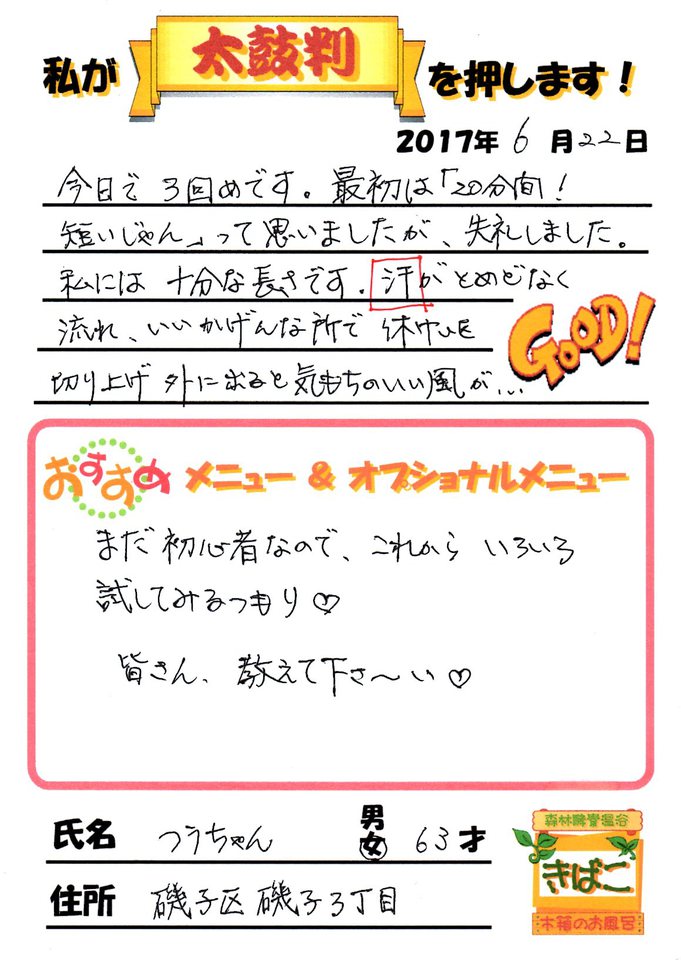 私が 太鼓判 を押します！
2017年 6 月 22 日
今日で 3回めです。最初は「20分間！
短いじゃん」って思いましたが、失礼しました。
私には 十分な長さです。汗がとめどなく
流れ、いいかげんな所で 休けいを
切り上げ 外に出ると気もちのいい風が...
GOOD!
おすすめ メニュー & オプショナルメニュー
まだ初心者なので、これから いろいろ
試してみるつもり♡
皆さん、教えて下さ〜い♡
氏名 つうちゃん 男 女 63才
住所 磯子区磯子3丁目
森林酵素温浴
きばこ
木箱のお風呂